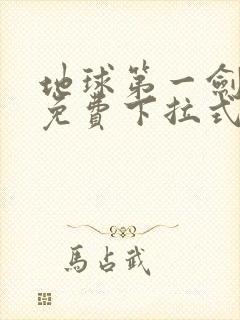 地球第一劍
免費下拉式
馬占武